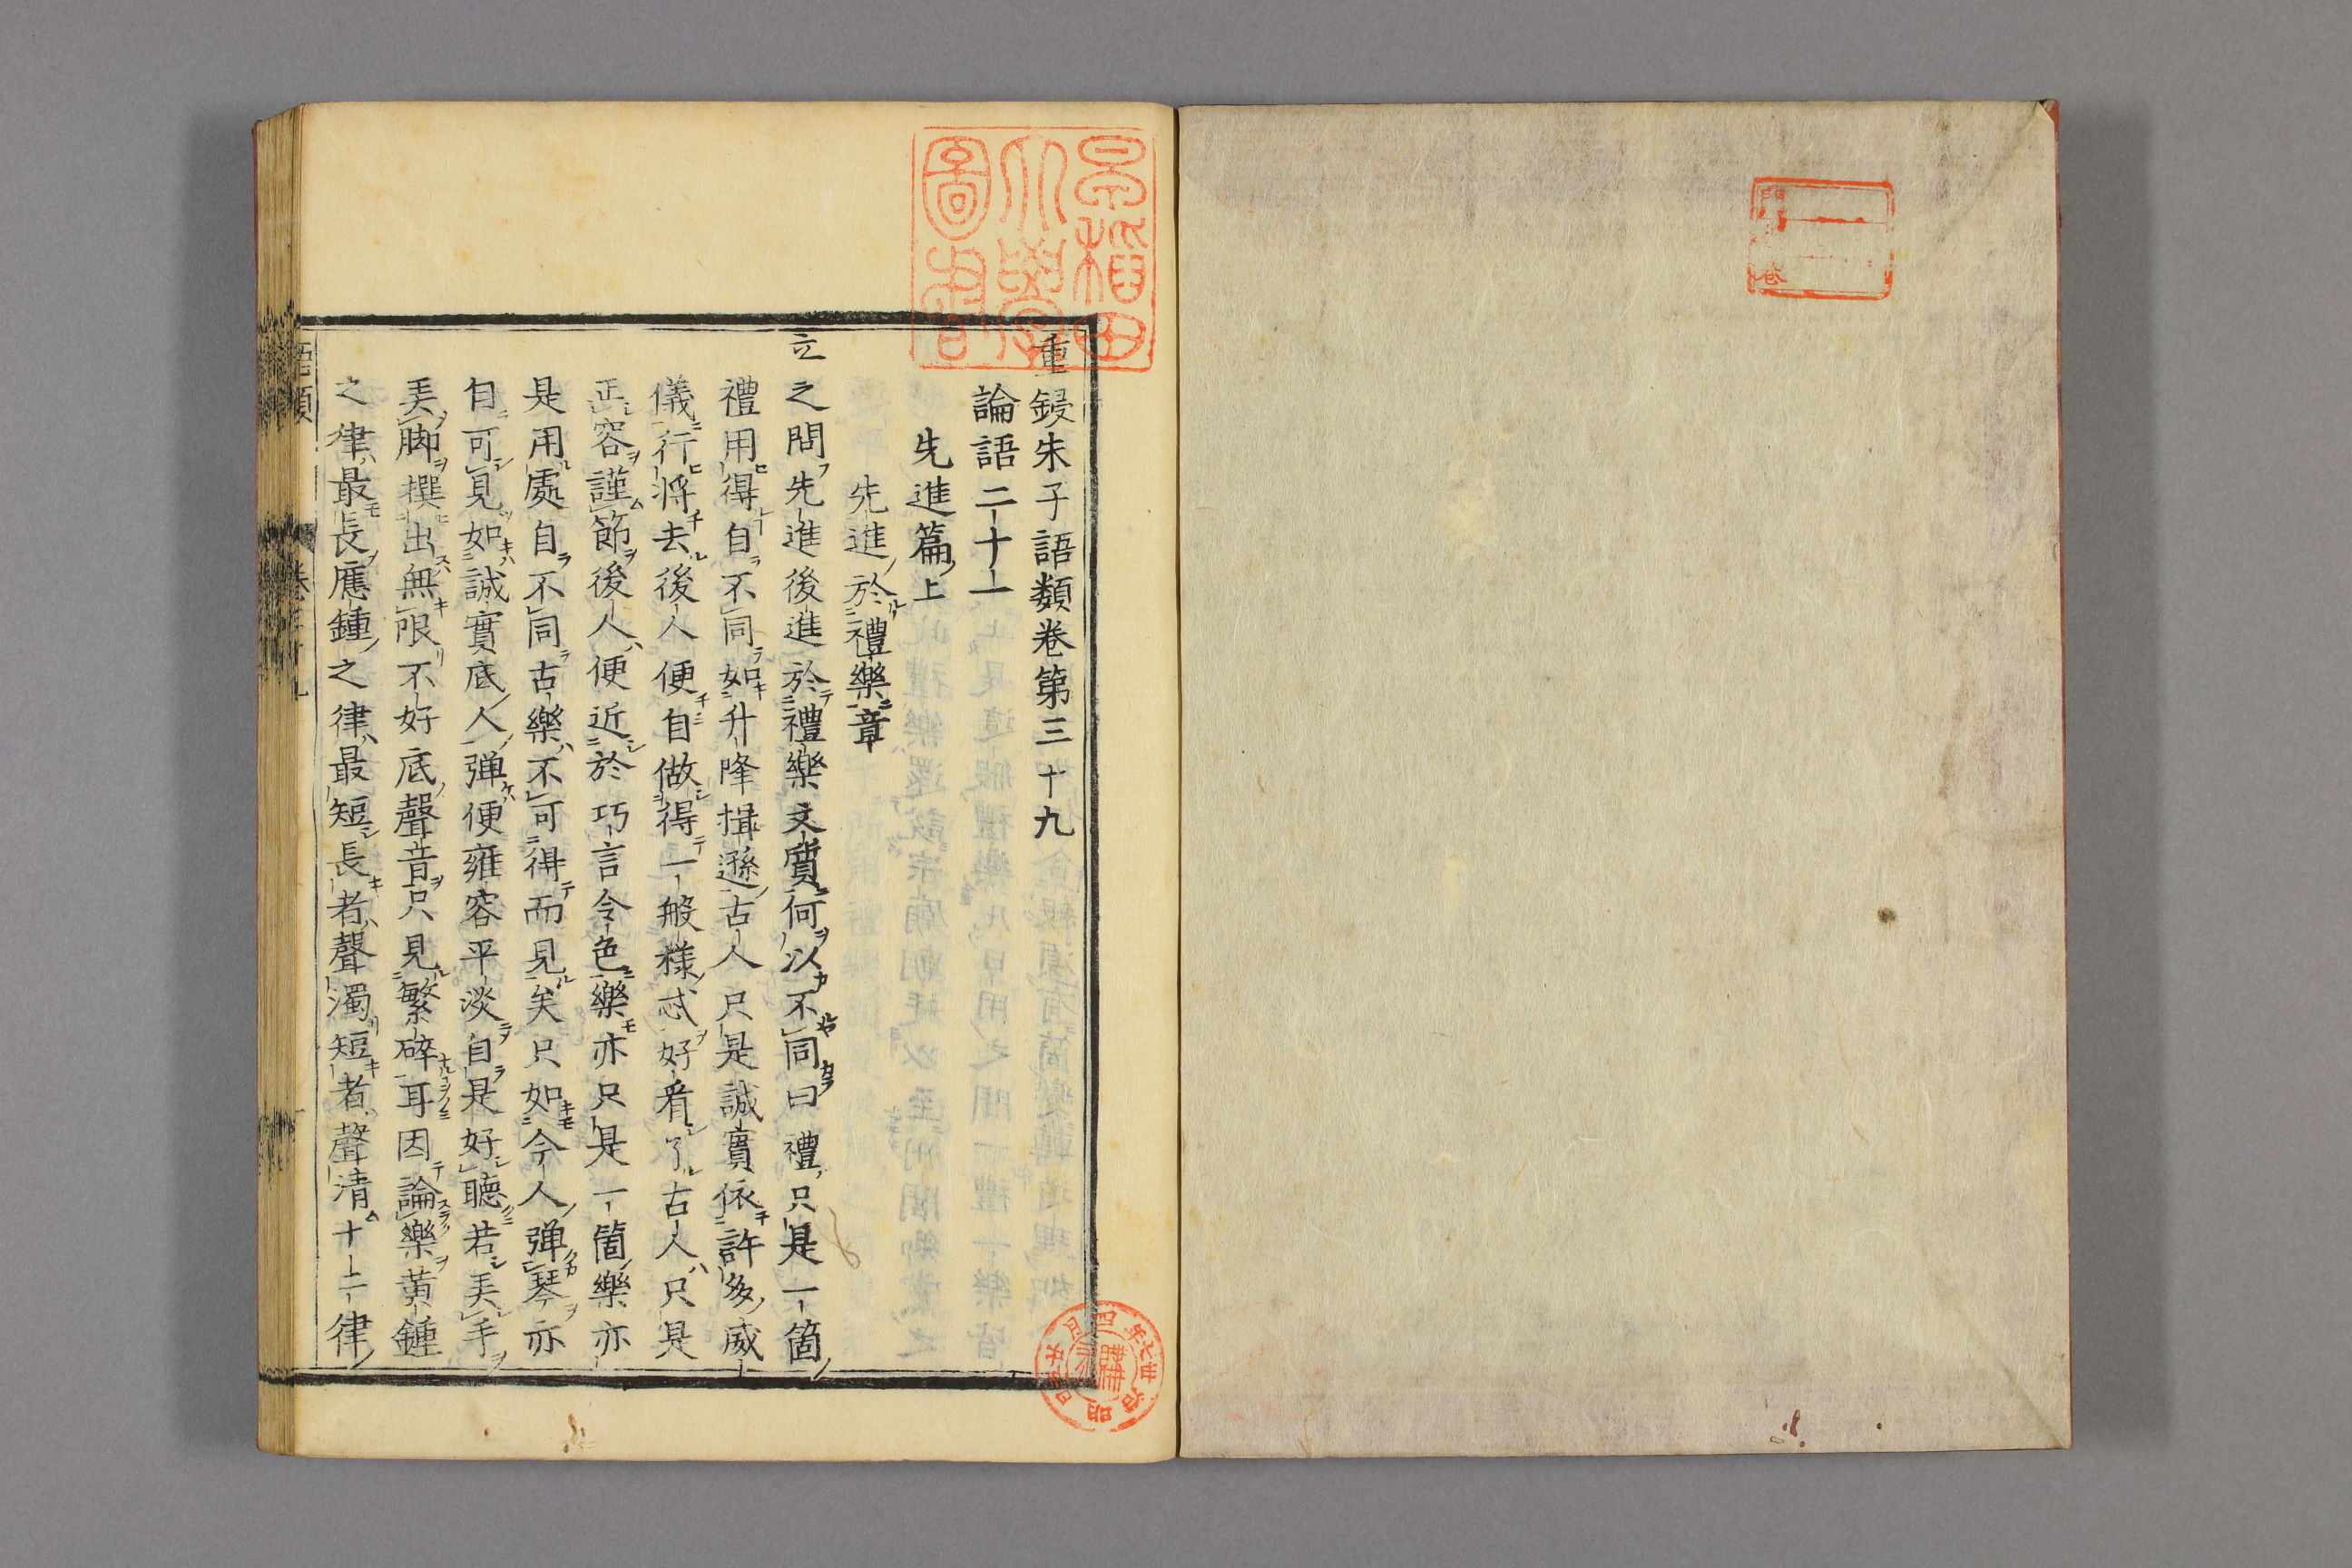 重鋟朱子語類卷第三十九
論語二十一
先進篇上
先進於禮樂章
立之問先進後進於禮樂文質何以不同曰禮只是一箇
禮用得自不同如升降揖遜古人只是誠實依許多威
儀行將去後人便自做得一般樣忒好看了古人只是
正容謹節後人便近於巧言令色樂亦只是一箇樂亦
是用處自不同古樂不可得而見矣只如今人彈琴亦
自可見如誠實底人彈便雍容平淡自是好聽若弄手
弄脚撰出無限不好底聲音只見繁碎耳因論樂黄鍾
之律最長應鍾之律最短長者聲濁短者聲清十二律
語類
卷三十九
早稲田
大學
圖書
門
卷
明治
四月